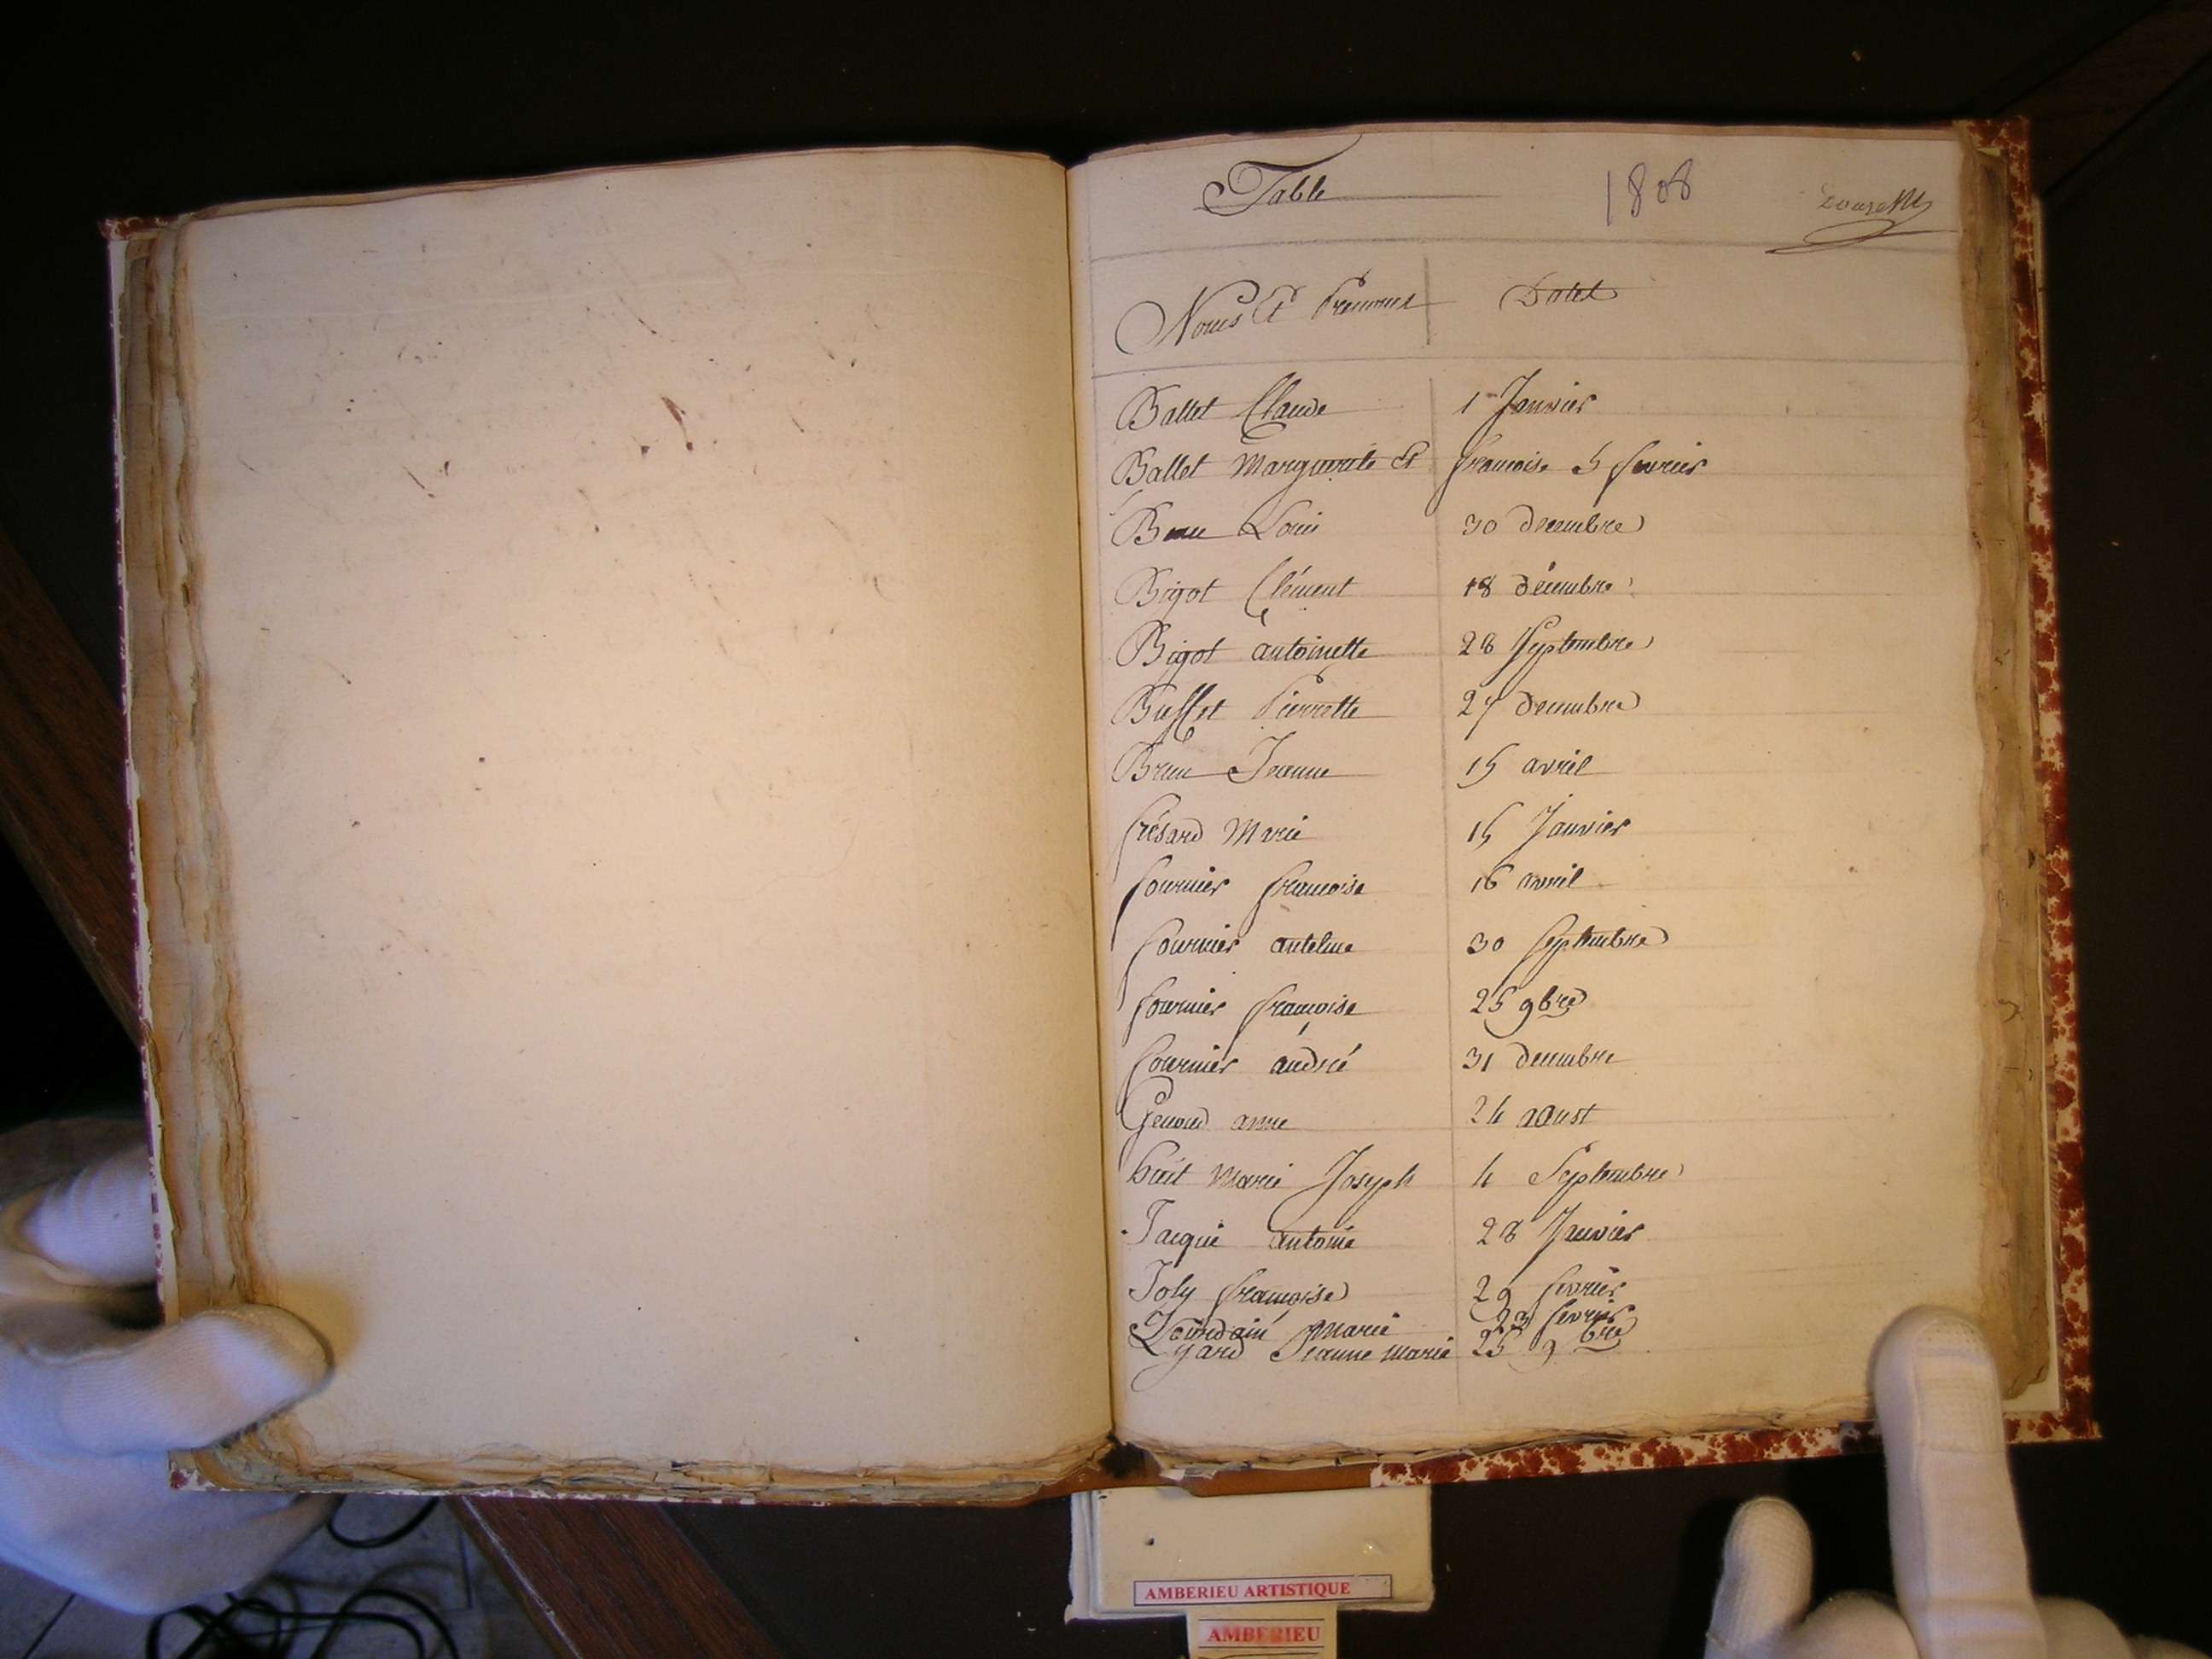 Table 1808 Douzette
Noms Et Prenoms Dates
Ballet Claude 1 Janvier
Ballet Marguerite Et francoise 5 fevrier
Beau Louis 30 decembre
Bigot Clément 18 décembre
Bigot antoinette 28 Septembre
Buffet Pierrette 27 decembre
Brun Jeanne 15 avril
frésard Marie 15 Janvier
fournier francoise 16 avril
fournier antelme 30 septembre
fournier françoise 25 9bre
fournier andré 31 decembre
Genoud anne 24 aoust
huit Marie Joseph 4 Septembre
Jacquie antoine 28 Janvier
Joly françoise 29 fevrier
Jourdain Marie 23 fevrier
Lyard Jeanne marie 25 9bre
AMBERIEU ARTISTIQUE
AMBERIEU